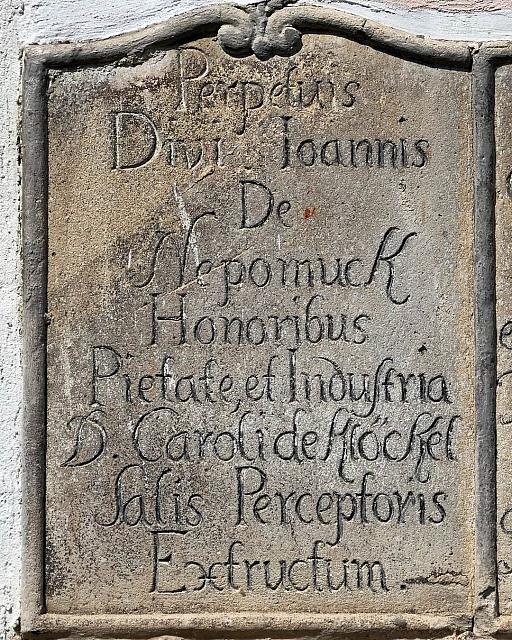 Perpetuis
Divi Ioannis
De
Nepomuck
Honoribus
Pietate, et Industria
D. Caroli de Klöckel
Salis Perceptoris
Extructum.